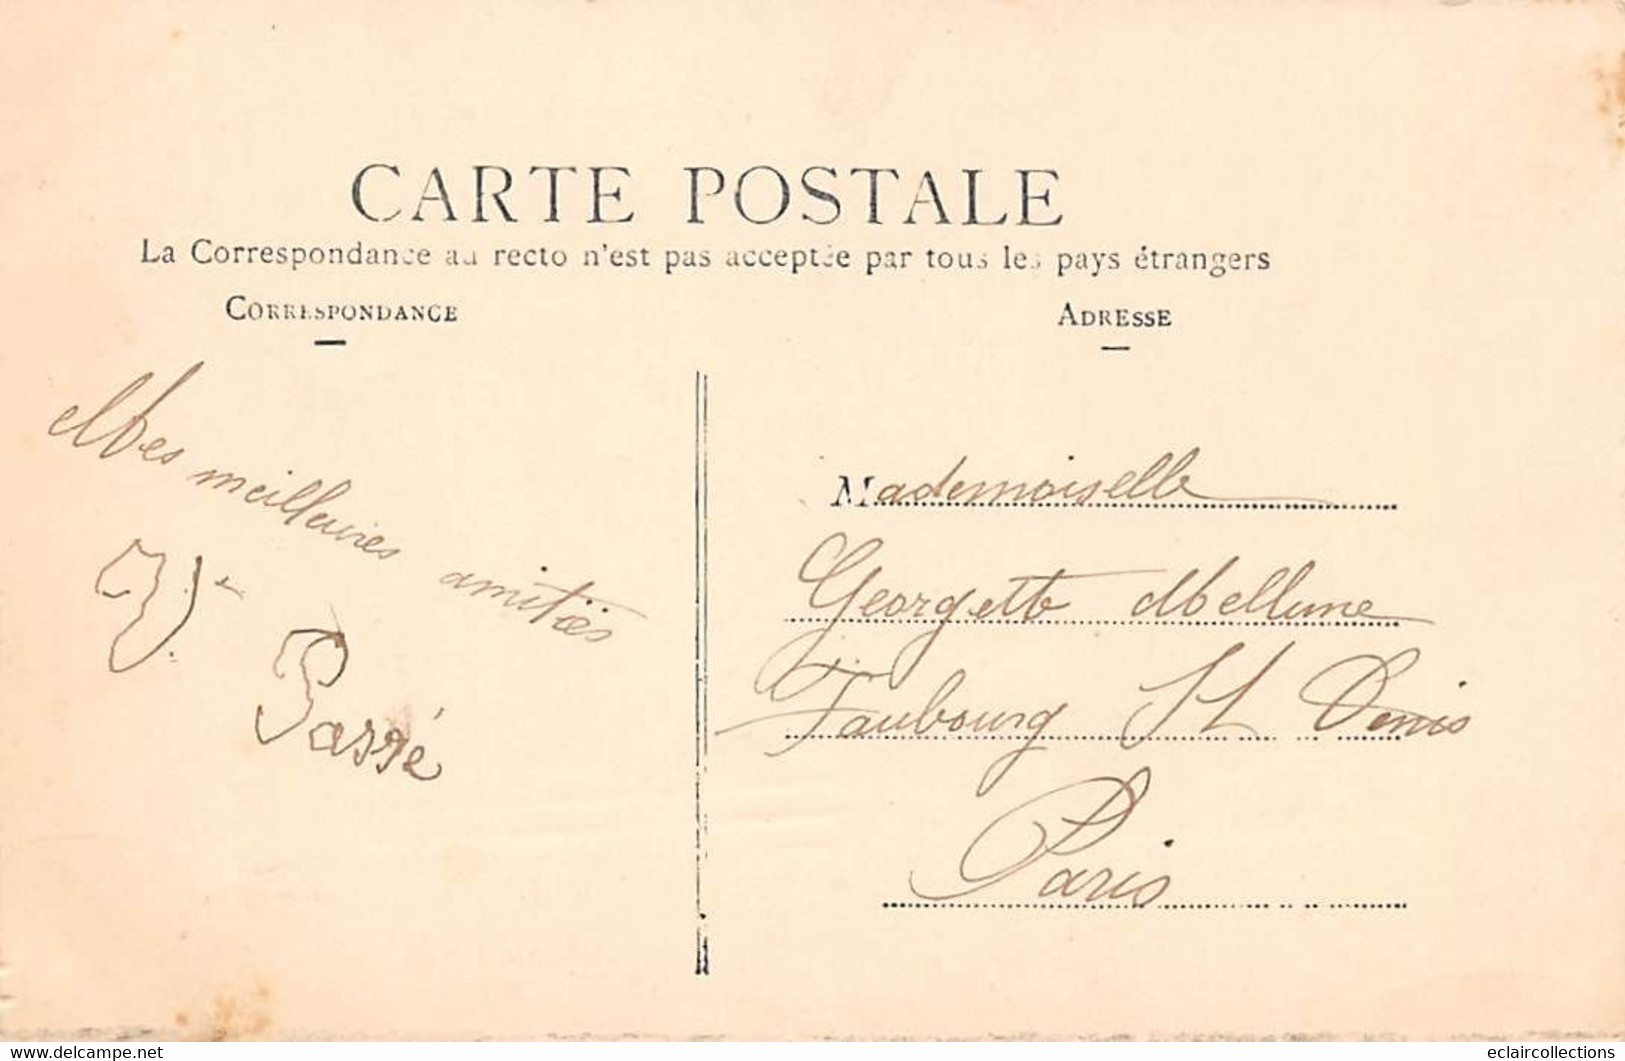 CARTE POSTALE
La Correspondance au recto n'est pas acceptée par tous les pays étrangers
CORRESPONDANCE
ADRESSE
Mes meilleures amitiés
V. Passé
Mademoiselle
Georgette
Faubourg St Denis
Paris
www.delcampe.net
eclaircollections